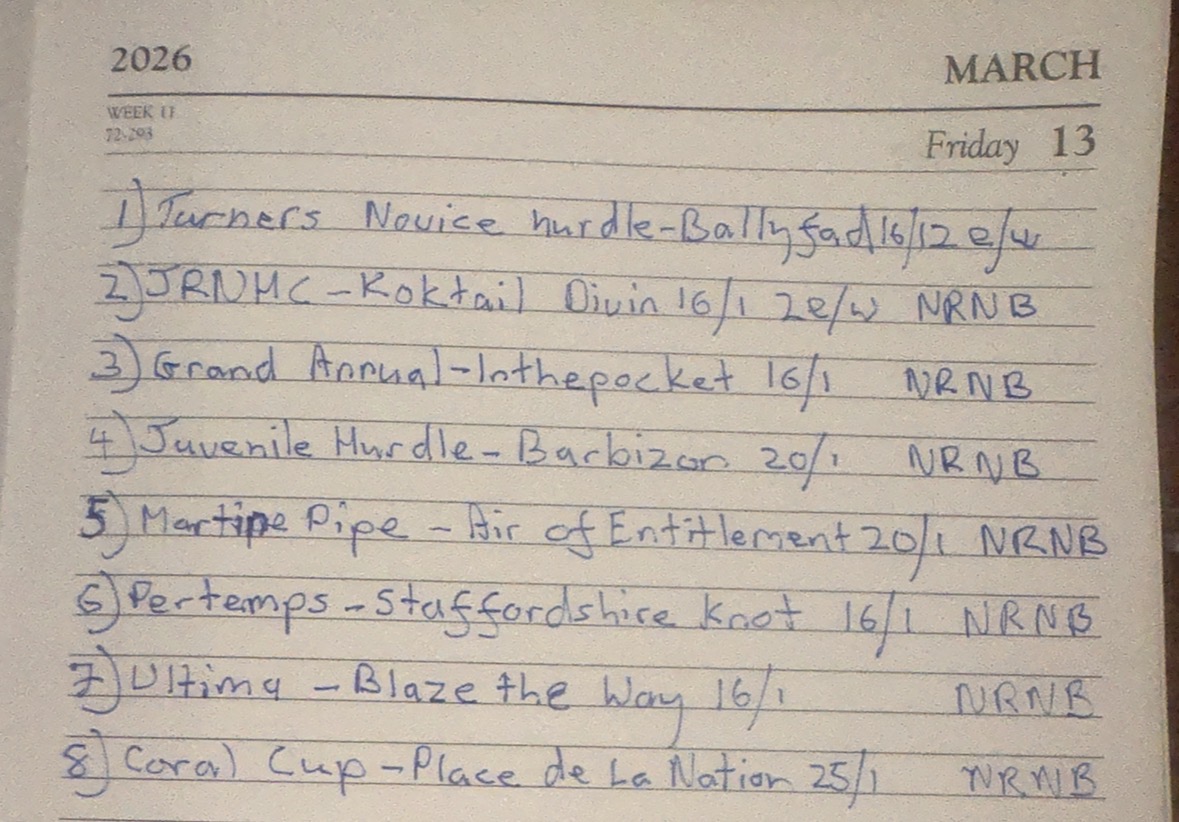 2026
MARCH
WEEK 11
72-293
Friday 13
1) Turners Novice hurdle-Ballyfad 16/1 2 e/w
2) JRNHC - Koktail Divin 16/1 2e/w NRNB
3) Grand Annual-Inthepocket 16/1 NRNB
4) Juvenile Hurdle - Barbizon 20/1 NRNB
5) Martine Pipe - Air of Entitlement 20/1 NRNB
6) Pertemps - Staffordshire Knot 16/1 NRNB
7) Ultima - Blaze the Way 16/1 NRNB
8) Coral Cup - Place de La Nation 25/1 NRNB